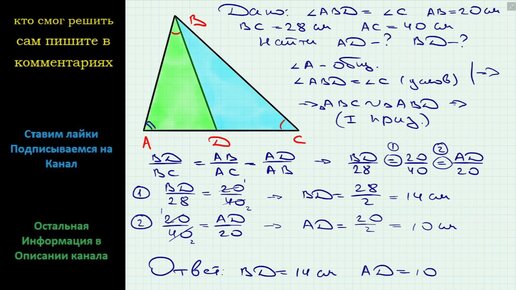 кто смог решить
сам пишите в
комментариях
Ставим лайки
Подписываемся на
Канал
Остальная
Информация в
Описании канала
B
A
D
C
Дано: ∠ABD = ∠C AB = 20 см
BC = 28 см AC = 40 см
Найти AD - ? BD - ?
∠A - общ.
∠ABD = ∠C (услов) | →
→ △ABC ~ △ABD →
(I призн.)
BD/BC = AB/AC = AD/AB → BD/28 ①= 20/40 ②= AD/20
① BD/28 = 20¹/40₂ → BD = 28/2 = 14 см
② 20¹/40₂ = AD/20 → AD = 20/2 = 10 см
Ответ: BD = 14 см AD = 10